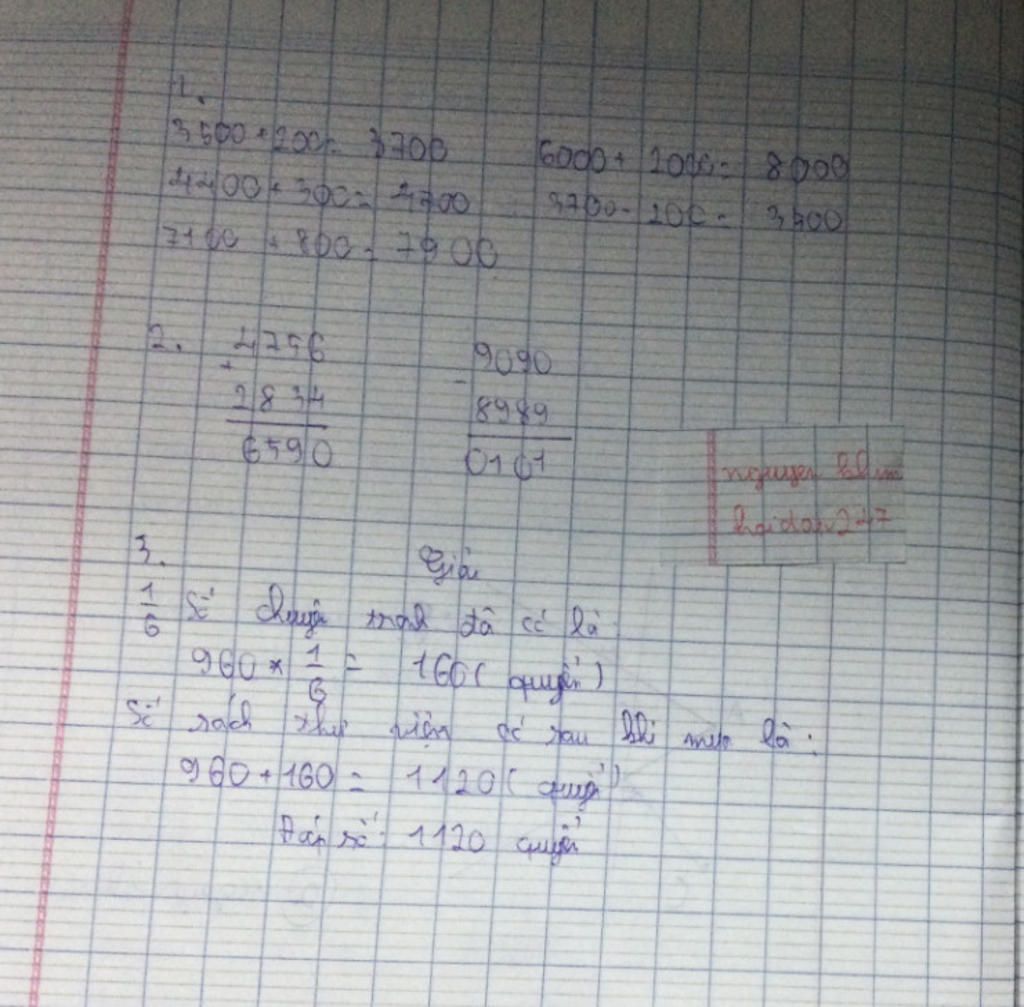 1.
3500 + 200 = 3700 6000 + 2000 = 8000
4400 + 300 = 4700 3700 - 200 = 3500
7100 + 800 = 7900
2. 4756 9090
+ -
2834 8989
6590 0101
nguyen
3. Giải
1/6 Số chuyện tranh đã có là
960 × 1/6 = 160 ( quyển )
Số sách thư viện có sau khi mua là :
960 + 160 = 1120 ( quyển )
Đáp số : 1120 quyển